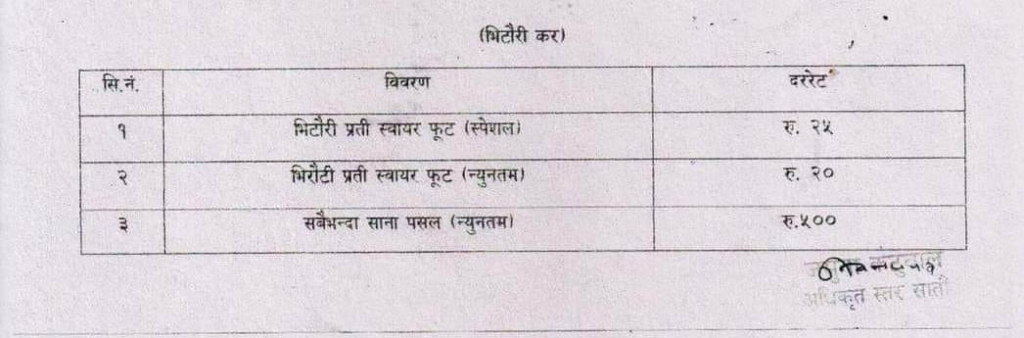 (भिटौरी कर)
सि.नं. विवरण दररेट
१ भिटौरी प्रती स्वायर फूट (स्पेशल) रु. २५
२ भिरौटी प्रती स्वायर फूट (न्युनतम) रु. २०
३ सबैभन्दा साना पसल (न्युनतम) रु.५००
अधिकृत स्तर सातौ